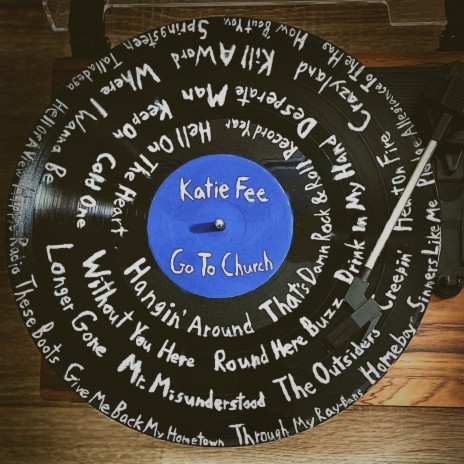 Katie Fee
Go To Church
Hangin' Around
That's Damn Rock & Roll
Record Year
Hell On The Heart
Without You Here
Round Here Buzz
Drink In My Hand
Desperate Man
Keep On
Cold One
Longer Gone
Mr. Misunderstood
The Outsiders
Creepin
Heart On Fire
Crazyland
Kill A Word
Where I Wanna Be
These Boots
Give Me Back My Hometown
Through My Ray-Bans
Homeboy
Sinners Like Me
Pledge Allegiance To The Hag
How Bout You
Springsteen
Talladega
Hell Of A View
Hippie Radio